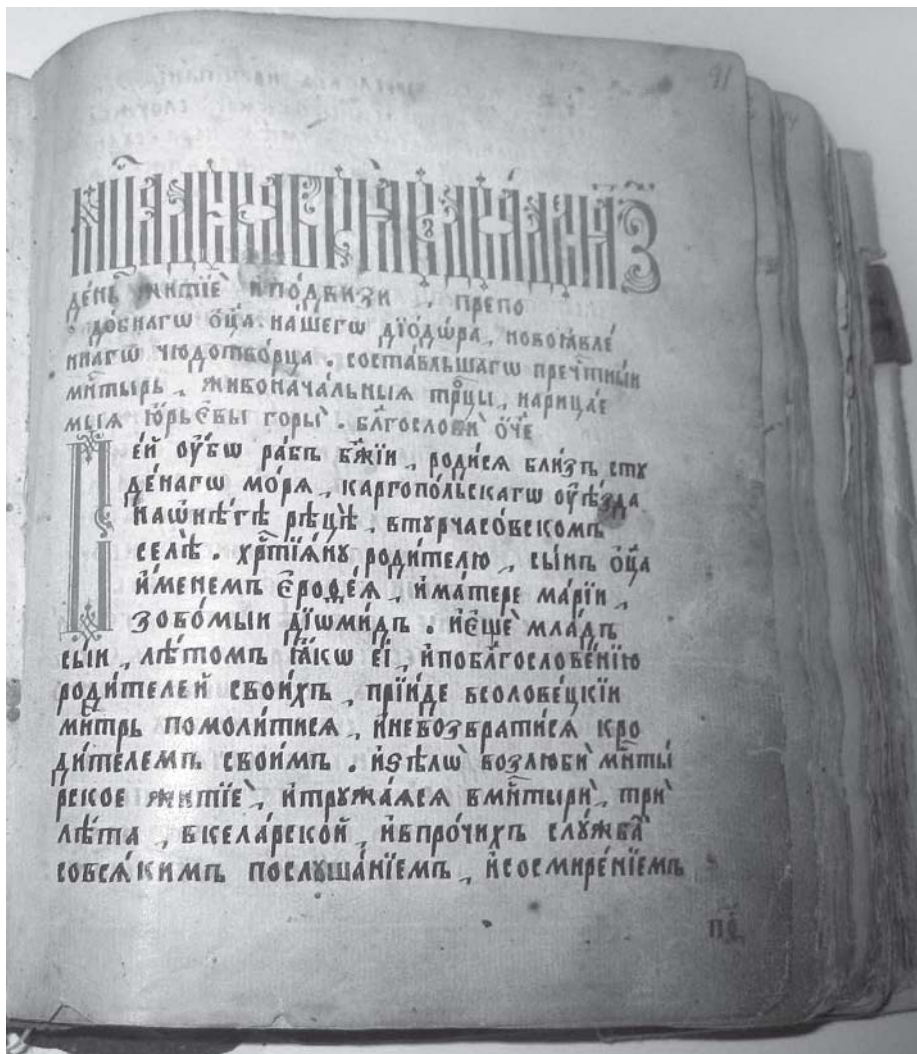 91
мц҃а ноѧбрѧ въ к҃з
де́нь житїѐ и҆по́двизи , препо
до́бнагѡ ѻ҆ц҃а нашегѡ дїѻдѡ́ра , новоꙗ҆вле́
ннагѡ чюдотво́рца . соста́вльшагѡ пречⷭ҇тны́й
мнⷭ҇тырь , живонача́льныѧ трⷪ҇цы , нарица́е
мыѧ ю҆́рьєвы горы̀ . бл҃гословѝ ѻ҆́ч҃е
Се́й оу҆́бѡ ра́бъ бж҃їй , роди́сѧ бли́зъ сту
де́нагѡ мо́рѧ , каргопо́льскагѡ оу҆ѣ́зда
наѡ҆нѣ́гѣ рѣцѣ̀ . втурчасо́вскомъ
селѣ̀ . хрⷭ҇тїѧ́ну роди́телю , сы́нъ ѻ҆ц҃а
и҆́менемъ є҆роѳе́ѧ , и҆ма́тере марі́и ,
зово́мыи дїѡми́дъ . и҆є҆щѐ мла́дъ
сы́и , лѣ́томъ ꙗ҆́кѡ є҃і , и҆побл҃гослове́нїю
роди́телей свои́хъ , прїи́де всолове́цкїи
мнⷭ҇трь помоли́тисѧ , и҆невозврати́сѧ кро
ди́телемъ свои́мъ . и҆ѕѣлѡ̀ возлюбѝ мнⷭ҇ты́
рское житїѐ , и҆тружа́ѧсѧ вмнⷭ҇тырѝ , трѝ
лѣ́та , вкела́рской , и҆впро́чихъ слу́жбаⷯ
совсѧ́кимъ послуша́нїемъ , и҆сосмире́нїемъ